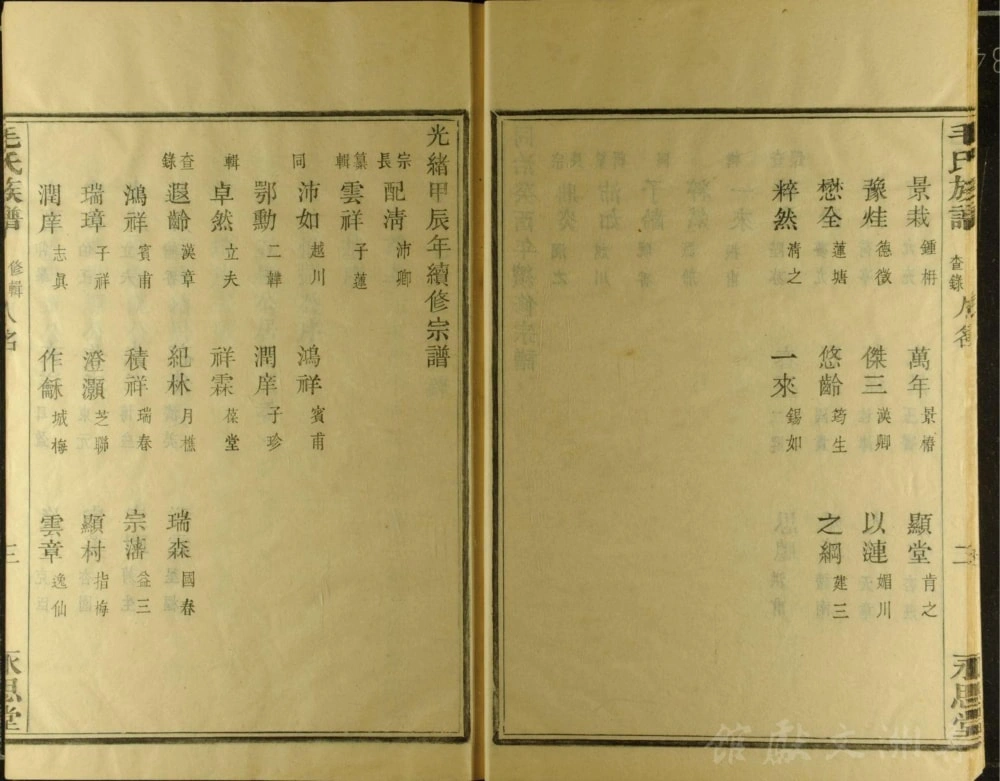 毛氏族譜 查錄 人名 二 永思堂
景栽 鍾枏 萬年 景椿 顯堂 肯之
豫烓 德徵 傑三 漢卿 以漣 媚川
懋全 蓮塘 悠齡 筠生 之綱 建三
粹然 清之 一來 錫如
光緒甲辰年續修宗譜
宗長 配清 沛卿
纂輯 雲祥 子蓮
同 沛如 越川 鴻祥 賓甫
鄂勳 二韓 潤庠 子珍
輯 卓然 立夫 祥霖 葆堂
查錄 遐齡 漢章 紀林 月樵 瑞森 國春
鴻祥 賓甫 積祥 瑞春 宗藩 益三
瑞璋 子祥 澄灝 芝聯 顯村 指梅
潤庠 志眞 作龢 城梅 雲章 逸仙
毛氏族譜 修輯 人名 三 永思堂
文獻館